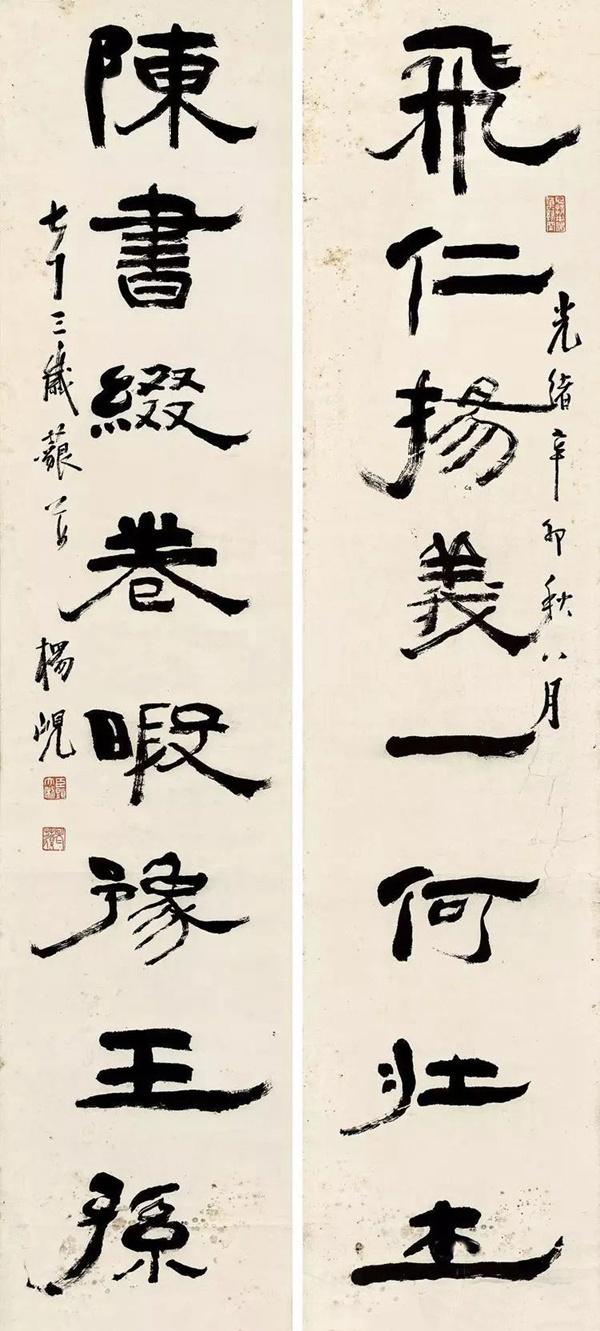 光緒辛卯秋八月
飛仁揚義一何壯杰
陳書綴卷暇豫王孫
七十三歲藐翁楊峴